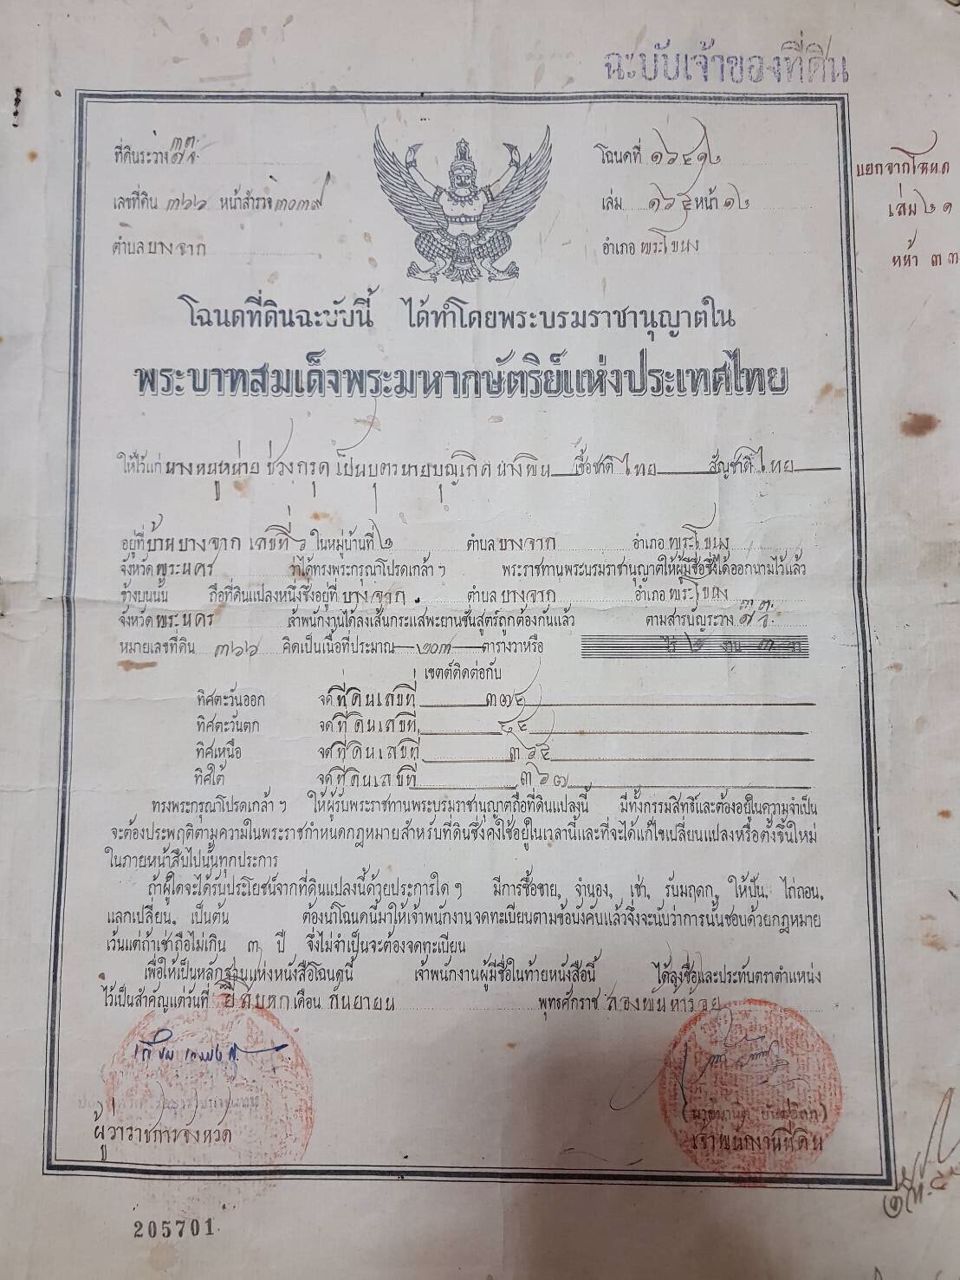 ฉะบับเจ้าของที่ดิน
ที่ดินระวาง
โฉนดที่ ๑๖๔๑๒
แยกจากโฉนด
เลขที่ดิน ๓๖๖ หน้าสำรวจ ๓๐๓๙
เล่ม ๑๖๕ หน้า ๑๒
เล่ม ๒๑
ตำบล บางจาก
อำเภอ พระโขนง
หน้า ๓๓
โฉนดที่ดินฉะบับนี้ ได้ทำโดยพระบรมราชานุญาตใน
พระบาทสมเด็จพระมหากษัตริย์แห่งประเทศไทย
ให้ไว้แก่ นางหนูหน่าย ช่วงกรุด เป็นบุตรนายบุญเกิด นางพิน เชื้อชาติ ไทย สัญชาติ ไทย
อยู่ที่ บ้านบางจาก เลขที่ ๖ ในหมู่บ้านที่ ๒ ตำบล บางจาก อำเภอ พระโขนง
จังหวัด พระนคร ว่าได้ทรงพระกรุณาโปรดเกล้า ฯ พระราชทานพระบรมราชานุญาตให้ผู้มีชื่อซึ่งได้ออกนามไว้แล้ว
ข้างบนนั้น ถือที่ดินแปลงหนึ่งซึ่งอยู่ที่ บางจาก ตำบล บางจาก อำเภอ พระโขนง
จังหวัด พระนคร เจ้าพนักงานได้ลงเส้นกระแสพะยานชันสูตร์ถูกต้องกันแล้ว ตามสารบัญระวาง
หมายเลขที่ดิน ๓๖๖ คิดเป็นเนื้อที่ประมาณ ๒๐๓ ตารางวาหรือ ไร่ ๒ งาน ๓ วา
เขตต์ติดต่อกับ
ทิศตะวันออก จดที่ดินเลขที่ ๓๗๔
ทิศตะวันตก จดที่ดินเลขที่ ๔๔
ทิศเหนือ จดที่ดินเลขที่ ๓๖๕
ทิศใต้ จดที่ดินเลขที่ ๓๖๗
ทรงพระกรุณาโปรดเกล้า ฯ ให้ผู้รับพระราชทานพระบรมราชานุญาตถือที่ดินแปลงนี้ มีทั้งกรรมสิทธิ์และต้องอยู่ในความจำเป็น
จะต้องประพฤติตามความในพระราชกำหนดกฎหมายสำหรับที่ดินซึ่งคงใช้อยู่ในเวลานี้และที่จะได้แก้ไขเปลี่ยนแปลงหรือตั้งขึ้นใหม่
ในภายหน้าสืบไปนั้นทุกประการ
ถ้าผู้ใดจะได้รับประโยชน์จากที่ดินแปลงนี้ด้วยประการใด ๆ มีการซื้อขาย, จำนอง, เช่า, รับมฤดก, ให้ปัน, ไถ่ถอน,
แลกเปลี่ยน, เป็นต้น ต้องนำโฉนดนี้มาให้เจ้าพนักงานจดทะเบียนตามข้อบังคับแล้วจึ่งจะนับว่าการนั้นชอบด้วยกฎหมาย
เว้นแต่ถ้าเช่าถือไม่เกิน ๓ ปี จึ่งไม่จำเป็นจะต้องจดทะเบียน
เพื่อให้เป็นหลักฐานแห่งหนังสือโฉนดนี้ เจ้าพนักงานผู้มีชื่อในท้ายหนังสือนี้ ได้ลงชื่อและประทับตราตำแหน่ง
ไว้เป็นสำคัญแต่วันที่ ยี่สิบหก เดือน กันยายน พุทธศักราช สองพันห้าร้อย
ผู้ว่าราชการจังหวัด
เจ้าพนักงานที่ดิน
205701